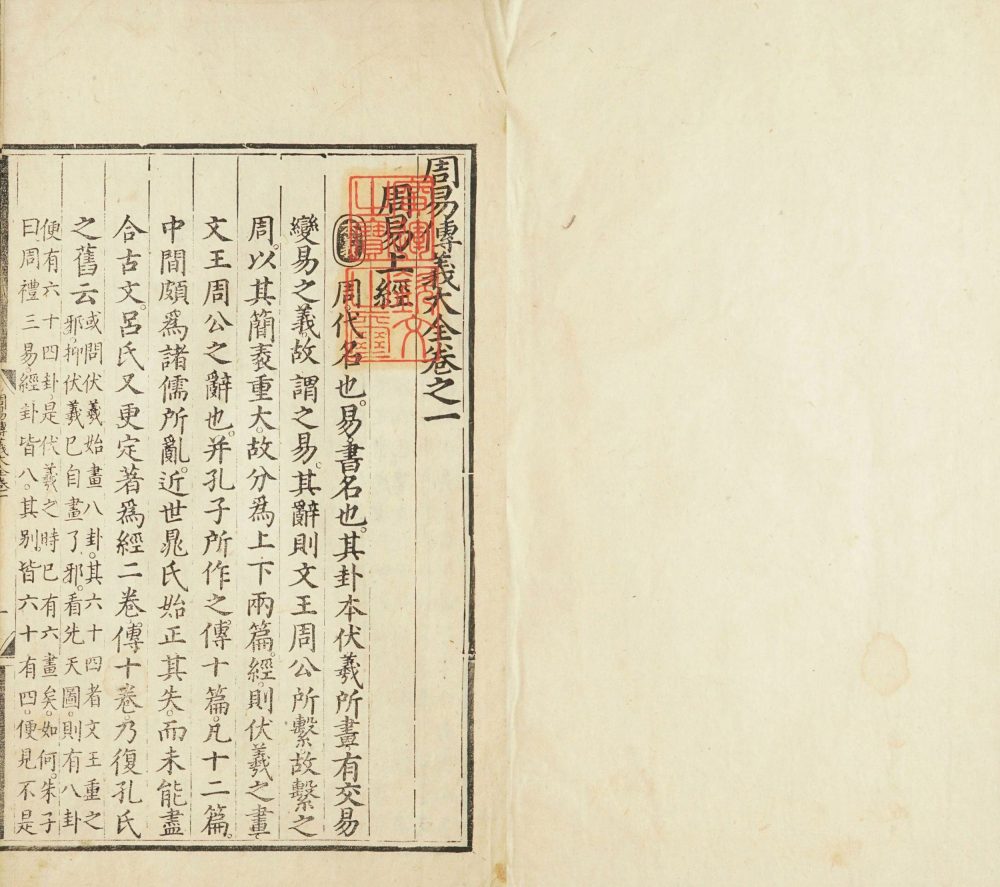 周易傳義大全卷之一
周易上經
本義 周。代名也。易。書名也。其卦本伏羲所畫。有交易
變易之義。故謂之易。其辭則文王周公所繫。故繫之
周。以其簡袠重大。故分爲上下兩篇。經。則伏羲之畫
文王周公之辭也。并孔子所作之傳十篇。凡十二篇。
中間頗爲諸儒所亂。近世晁氏始正其失。而未能盡
合古文。呂氏又更定著爲經二卷。傳十卷。乃復孔氏
之舊云
或問伏羲始畫八卦。其六十四者文王重之
邪。抑伏羲已自畫了邪。看先天圖。則有八卦
便有六十四卦。是伏羲之時已有六畫矣。如何。朱子
曰。周禮三易。經卦皆八。其别。皆六十有四。便見不是
周易傳義大全卷一